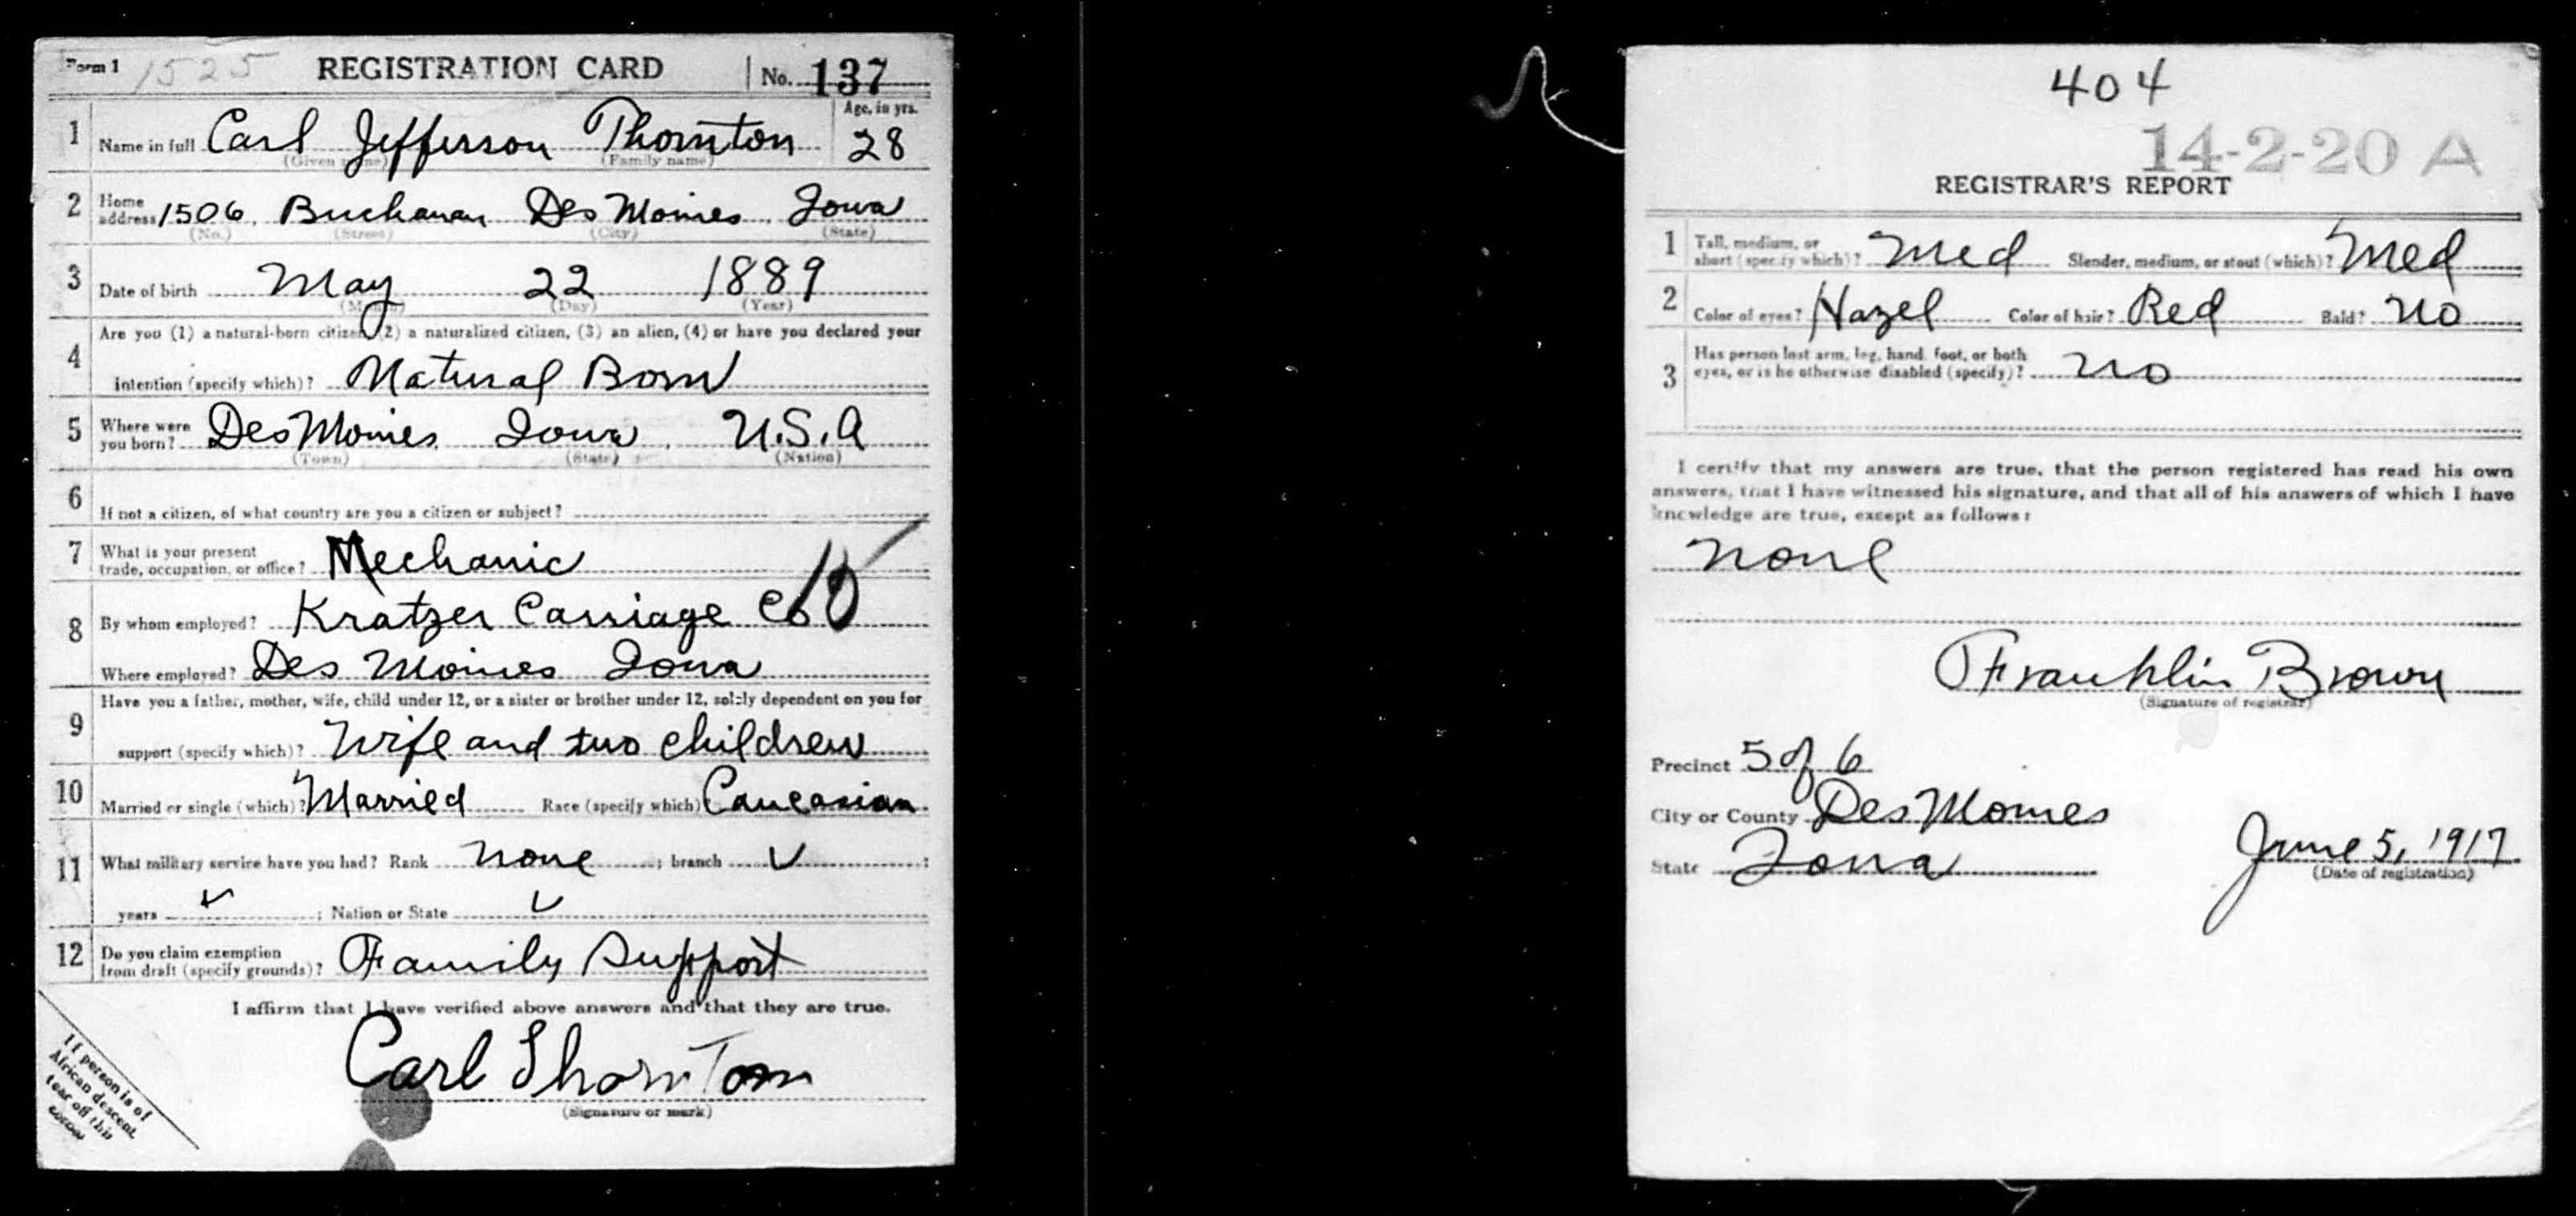 Form 1 1525 REGISTRATION CARD No. 137
1 Name in full Carl Jefferson Thornton Age, in yrs. 28
(Given name) (Family name)
2 Home address 1506 Buchanan Des Moines Iowa
(No.) (Street) (City) (State)
3 Date of birth May 22 1889
(Month) (Day) (Year)
4 Are you (1) a natural-born citizen, (2) a naturalized citizen, (3) an alien, (4) or have you declared your
intention (specify which)? Natural Born
5 Where were you born? Des Moines Iowa U.S.A
(Town) (State) (Nation)
6 If not a citizen, of what country are you a citizen or subject?
7 What is your present trade, occupation, or office? Mechanic
10
8 By whom employed? Kratzer Carriage Co
Where employed? Des Moines Iowa
9 Have you a father, mother, wife, child under 12, or a sister or brother under 12, solely dependent on you for
support (specify which)? Wife and two children
10 Married or single (which)? Married Race (specify which) Caucasian
11 What military service have you had? Rank none ; branch ✓ ;
years ✓ ; Nation or State ✓
12 Do you claim exemption from draft (specify grounds)? Family Support
I affirm that I have verified above answers and that they are true.
Carl Thornton
(Signature or mark)
If person is of
African descent,
tear off this
corner
404
14-2-20 A
REGISTRAR'S REPORT
1 Tall, medium, or short (specify which)? Med Slender, medium, or stout (which)? Med
2 Color of eyes? Hazel Color of hair? Red Bald? No
3 Has person lost arm, leg, hand, foot, or both
eyes, or is he otherwise disabled (specify)? no
I certify that my answers are true, that the person registered has read his own
answers, that I have witnessed his signature, and that all of his answers of which I have
knowledge are true, except as follows:
none
Franklin Brown
(Signature of registrar)
Precinct 5 of 6
City or County Des Moines
State Iowa June 5, 1917
(Date of registration)